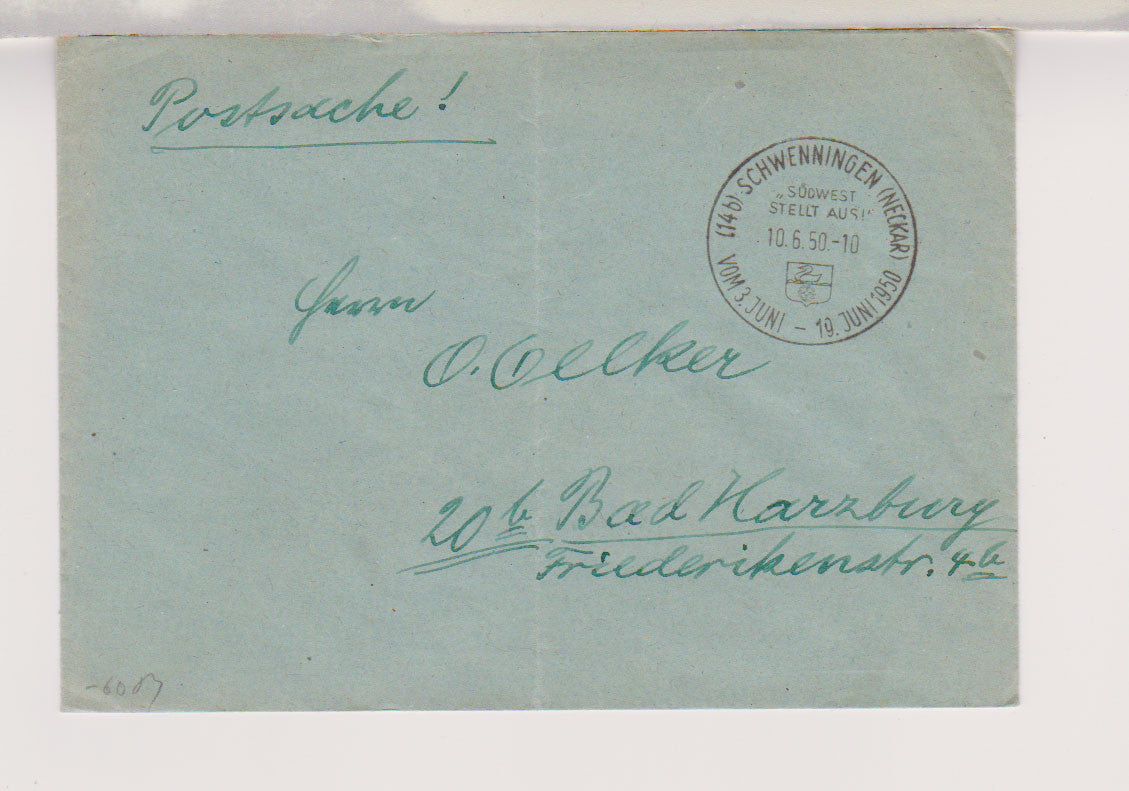 Postsache!
(14b) SCHWENNINGEN (NECKAR)
„SÜDWEST
STELLT AUS!"
10.6.50.-10
VOM 3. JUNI – 19. JUNI 1950
Herrn
O. Oelker
20b Bad Harzburg
Friederikenstr. 4b